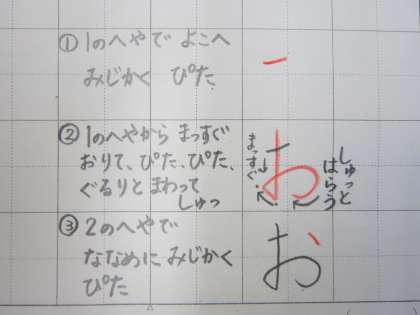 ① 1のへやで よこへ
みじかく ぴた
② 1のへやから まっすぐ
おりて、ぴた、ぴた、
ぐるりと まわって
しゅっ
まっすぐ
お
しゅっと
はらう
③ 2のへやで
ななめに みじかく
ぴた
お